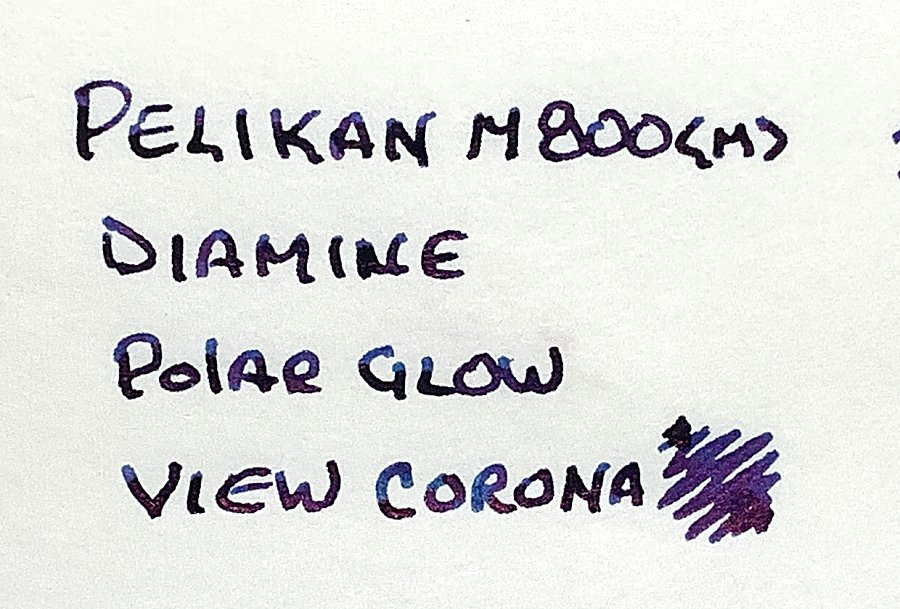 PELIKAN M800<M>
DIAMINE
POLAR GLOW
VIEW CORONA